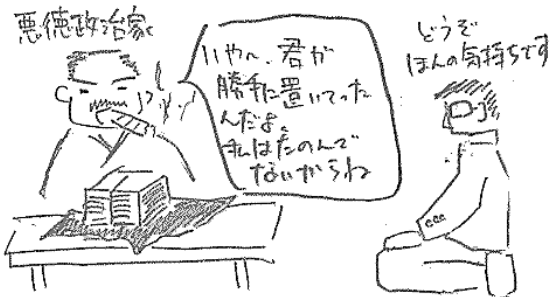 悪徳政治家
いや〜、君が
勝手に置いてった
んだよ。
私はたのんで
ないからね
どうぞ
ほんの気持ちです